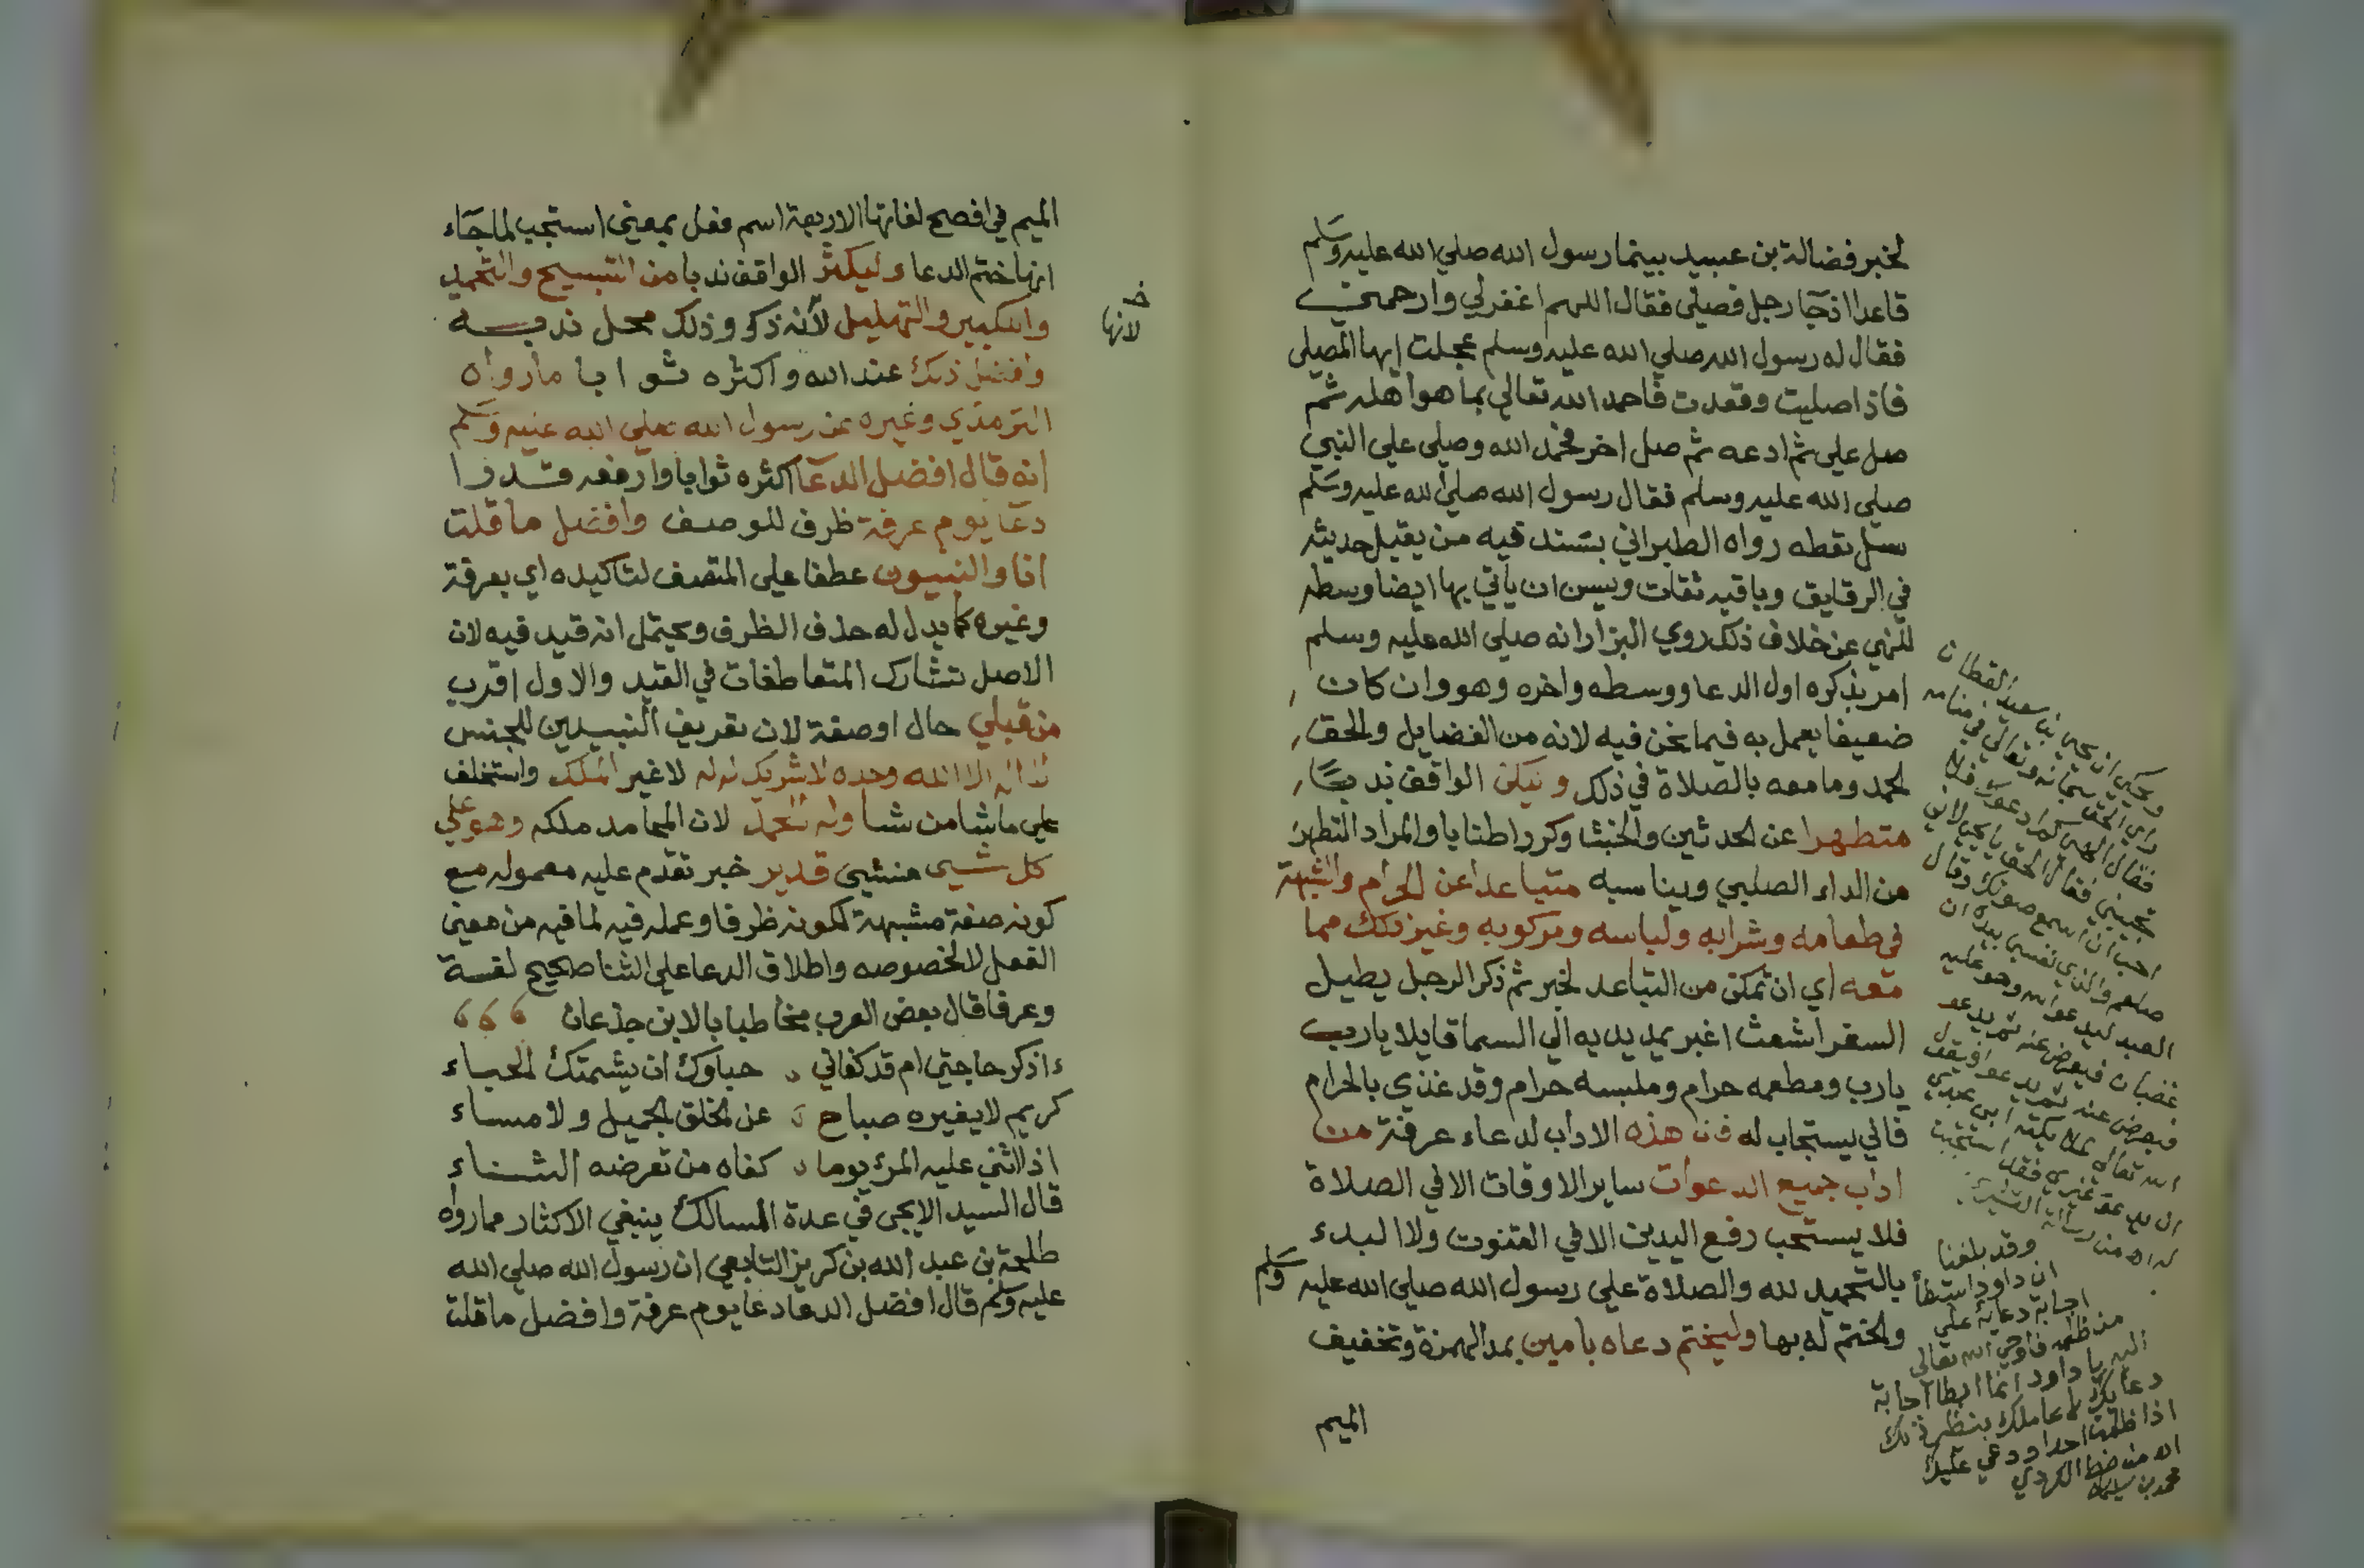 لخبر فضالة بن عبيد بينما رسول الله صلي الله عليه وسلم
قاعدا اذ جا رجل فصلي فقال اللهم اغفر لي وارحمني
فقال له رسول الله صلي الله عليه وسلم عجلت ايها المصلي
فاذا صليت وقعدت فاحمد الله تعالي بما هو اهله ثم
صل علي ثم ادعه ثم صل اخر فحمد الله وصلي علي النبي
صلي الله عليه وسلم فقال رسول الله صلي الله عليه وسلم
سل تعطه رواه الطبراني بسند فيه من يقبل حديثه
في الرقايق وباقيه ثقات ويسن ان ياتي بها ايضا وسطه
للنهي عن خلاف ذلك روي البزار انه صلي الله عليه وسلم
امر بذكره اول الدعا ووسطه واخره وهو وان كان
ضعيفا يعمل به فيما نحن فيه لانه من الفضايل والحق
الحمد وما معه بالصلاة في ذلك وليكن الواقف ندبا
متطهرا عن الحدثين والخبث وكرر اطنابا والمراد التطهر
من الداء الصلبي ويناسبه متباعدا عن الحرام والشبهة
في طعامه وشرابه ولباسه ومركوبه وغير ذلك مما
معه اي ان تمكن من التباعد لخبر ثم ذكر الرجل يطيل
السفر اشعث اغبر يمد يديه الي السما قايلا يا رب
يارب ومطعمه حرام وملبسه حرام وقد غذي بالحرام
فاني يستجاب له فان هذه الاداب لدعاء عرفة من
اداب جميع الدعوات ساير الاوقات الا في الصلاة
فلا يستحب رفع اليدين الا في القنوت ولا البدء
بالتحميد لله والصلاة علي رسول الله صلي الله عليه وسلم
والختم له بها وليختم دعاه بامين بمد الهمزة وتخفيف
الميم
وحكي ان يحيي بن سعيد القطان
راي الحق سبحانه وتعالي في منامه
فقال الهي كم ادعوك فلا
تجيبني فقال الحق يا يحيي لاني
احب ان اسمع صوتك وقال
صلعم والذي نفسي بيده ان
العبد ليدعو الله وهو عليه
غضبان فيعرض عنه ثم يدعو
فيعرض عنه ثم يدعو فيقول
الله تعالي لملايكته ابي عبدي
ان يدعو غيري فقد استجبت
له اه من رسالة القشيري
وقد بلغنا
ان داود استبطأ
اجابة دعائه علي
من ظلمه فاوحي الله تعالي
اليه يا داود انما ابطا اجابة
دعايك لاعاملك بنظير ذلك
اذا ظلمت احدا ودعي عليك
اه من خط الكردي
محمد بن سليمان
الميم في افصح لغاتها الاربعة اسم فعل بمعني استجب لما جاء
انها ختم الدعا وليكثر الواقف ندبا من التسبيح والتحميد
والتكبير والتهليل لأنه ذكر وذلك محل ندبه
خـ
لانها
وافضل ذلك عند الله واكثره ثوابا ما رواه
الترمذي وغيره عن رسول الله صلي الله عليه وسلم
انه قال افضل الدعا اكثره ثوابا وارفعه قدرا
دعا يوم عرفة ظرف للوصف وافضل ما قلت
انا والنبيون عطفا علي المتصف لتاكيده اي بعرفة
وغيره كما يدل له حذف الظرف ويحتمل انه قيد فيه لان
الاصل تشارك المتعاطفات في القيد والاول اقرب
من قبلي حال او صفة لان تعريف النبيين للجنس
لا اله الا الله وحده لا شريك له له لا غير الملك واستخلف
علي ما شا من شا وله الحمد لان المحامد ملكه وهو علي
كل شيي منشيي قدير خبر تقدم عليه معموله مع
كونه صفة مشبهة لكونه ظرفا وعمله فيه لما فيه من معني
الفعل لا لخصوصه واطلاق الدعا علي الثنا صحيح لغسة
وعرفا قال بعض العرب مخاطبا بالابن جدعان
ءاذكر حاجتي ام قد كفاني حباوك ان شيمتك الحباء
كريم لا يغيره صباح عن الخلق الجميل ولا مساء
اذا اثني عليه المرء يوما كفاه من تعرضه الثناء
قال السيد الايجي في عدة المسالك ينبغي الاكثار مما رواه
طلحة بن عبد الله بن كريز التابعي ان رسول الله صلي الله
عليه وسلم قال افضل الدعا دعا يوم عرفة وافضل ما قلت